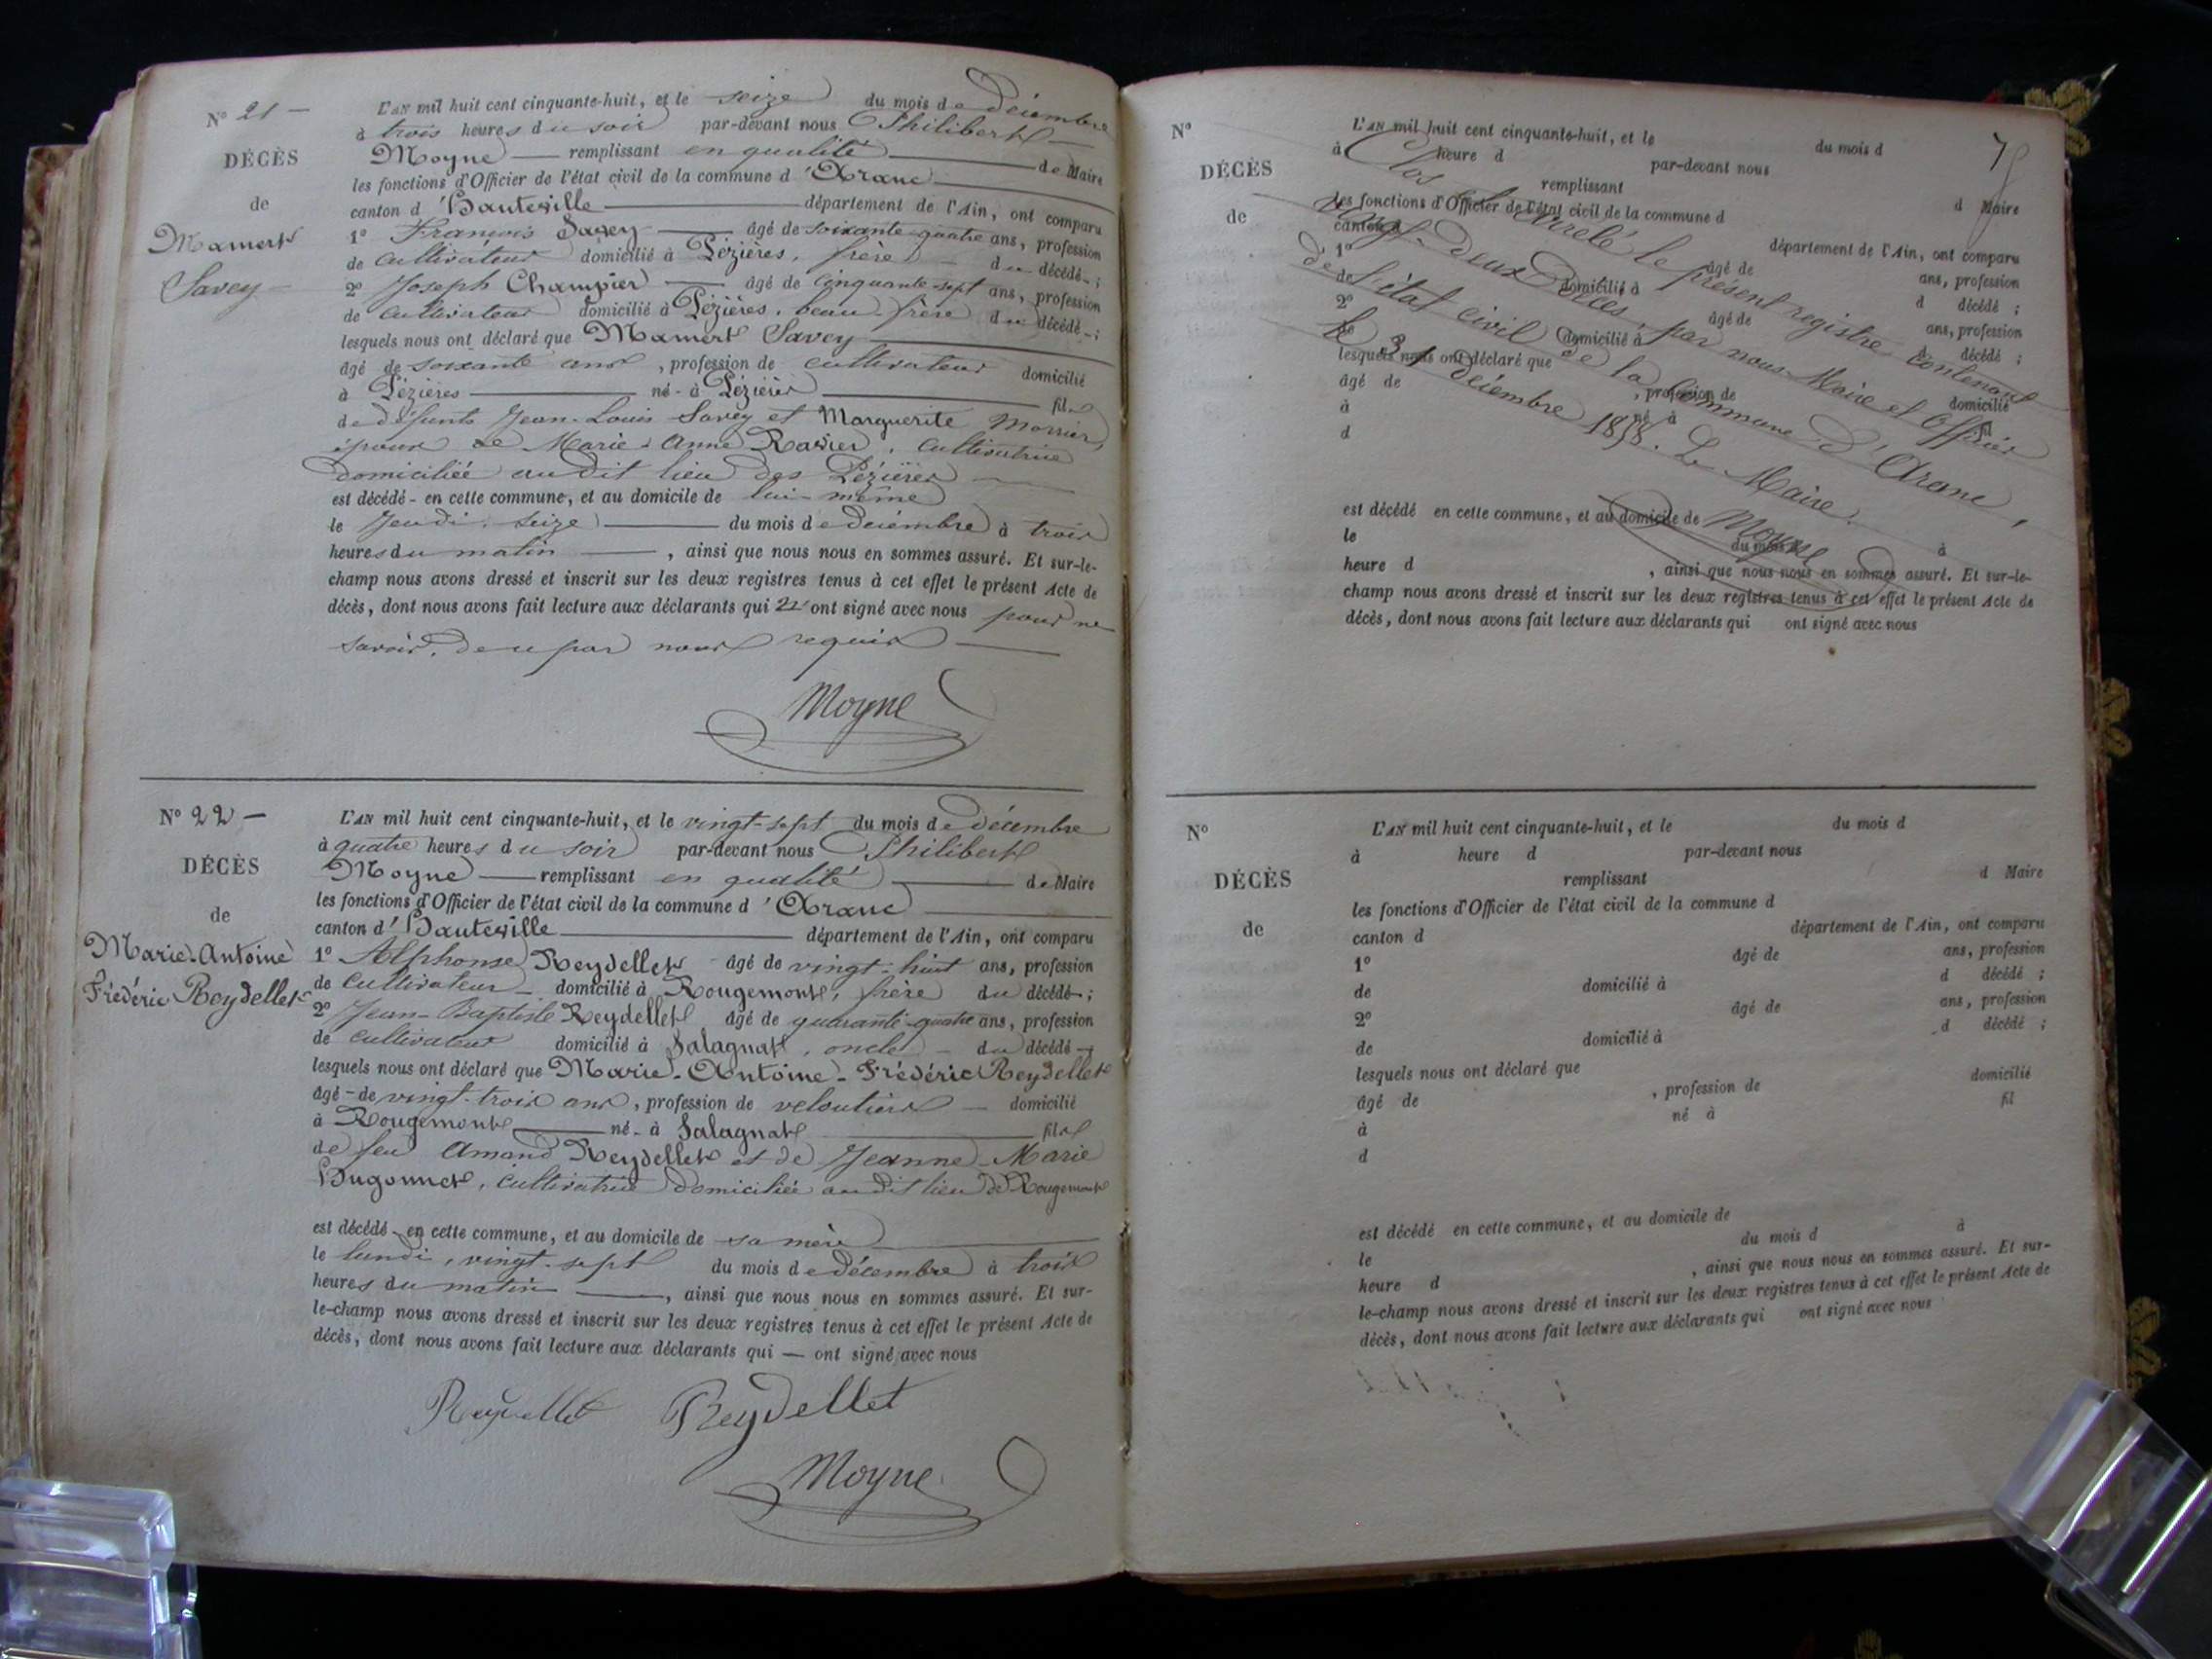 N° 21 —
DÉCÈS
de
Mamert
Savey
L'AN mil huit cent cinquante-huit, et le seize du mois de décembre
à trois heures du soir par-devant nous Philibert
Moyne — remplissant en qualité — de Maire
les fonctions d'Officier de l'état civil de la commune d'Aranc
canton d'Hauteville — département de l'Ain, ont comparu
1° François Savey — âgé de soixante-quatre ans, profession
de cultivateur domicilié à Pézières, frère — du décédé ;
2° Joseph Champier — âgé de cinquante-sept ans, profession
de cultivateur domicilié à Pézières, beau-frère du décédé ;
lesquels nous ont déclaré que Mamert Savey
âgé de soixante ans, profession de cultivateur domicilié
à Pézières — né à Pézières — fils
de défunts Jean-Louis Savey et Marguerite
époux de Marie-Anne Ravier, cultivatrice
domiciliée audit lieu des Pézières —
est décédé en cette commune, et au domicile de lui-même
le jeudi, seize — du mois de décembre à trois
heures du matin —, ainsi que nous nous en sommes assuré. Et sur-le-
champ nous avons dressé et inscrit sur les deux registres tenus à cet effet le présent Acte de
décès, dont nous avons fait lecture aux déclarants qui ont signé avec nous pour ne
savoir, de ce par nous requis —
Moyne
N° 22 —
DÉCÈS
de
Marie-Antoine
Frédéric Reydellet
L'AN mil huit cent cinquante-huit, et le vingt-sept du mois de décembre
à quatre heures du soir par-devant nous Philibert
Moyne — remplissant en qualité — de Maire
les fonctions d'Officier de l'état civil de la commune d'Aranc
canton d'Hauteville — département de l'Ain, ont comparu
1° Alphonse Reydellet âgé de vingt-huit ans, profession
de cultivateur — domicilié à Rougemont, frère du décédé ;
2° Jean-Baptiste Reydellet âgé de quarante-quatre ans, profession
de cultivateur domicilié à Salagnat, oncle — du décédé
lesquels nous ont déclaré que Marie-Antoine-Frédéric Reydellet
âgé de vingt-trois ans, profession de veloutier — domicilié
à Rougemont — né à Salagnat — fils
de feu Amand Reydellet et de Jeanne-Marie
Hugonnet, cultivatrice domiciliée audit lieu de Rougemont
est décédé en cette commune, et au domicile de sa mère
le lundi, vingt-sept du mois de décembre à trois
heures du matin —, ainsi que nous nous en sommes assuré. Et sur-
le-champ nous avons dressé et inscrit sur les deux registres tenus à cet effet le présent Acte de
décès, dont nous avons fait lecture aux déclarants qui — ont signé avec nous
Reydellet Reydellet
Moyne
N°
DÉCÈS
de
L'AN mil huit cent cinquante-huit, et le du mois d
à heure d par-devant nous
remplissant d Maire
les fonctions d'Officier de l'état civil de la commune d
canton d département de l'Ain, ont comparu
1° âgé de ans, profession
de domicilié à d décédé ;
2° âgé de ans, profession
de domicilié à d décédé ;
lesquels nous ont déclaré que
âgé de , profession de domicilié
à né à fil
d
Clos et arrêté le présent registre contenant
vingt-deux Décès, par nous Maire et Officier
de l'état civil de la Commune d'Aranc,
le 31 décembre 1858. Le Maire.
Moyne
est décédé en cette commune, et au domicile de
le du mois d à
heure d , ainsi que nous nous en sommes assuré. Et sur-le-
champ nous avons dressé et inscrit sur les deux registres tenus à cet effet le présent Acte de
décès, dont nous avons fait lecture aux déclarants qui ont signé avec nous
N°
DÉCÈS
de
L'AN mil huit cent cinquante-huit, et le du mois d
à heure d par-devant nous
remplissant d Maire
les fonctions d'Officier de l'état civil de la commune d
canton d département de l'Ain, ont comparu
1° âgé de ans, profession
de domicilié à d décédé ;
2° âgé de ans, profession
de domicilié à d décédé ;
lesquels nous ont déclaré que
âgé de , profession de domicilié
à né à fil
d
est décédé en cette commune, et au domicile de
le du mois d à
heure d , ainsi que nous nous en sommes assuré. Et sur-
le-champ nous avons dressé et inscrit sur les deux registres tenus à cet effet le présent Acte de
décès, dont nous avons fait lecture aux déclarants qui ont signé avec nous